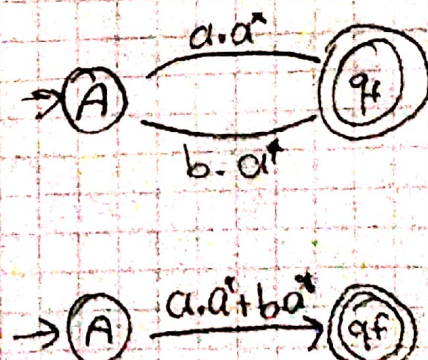 a.a*
→ A qf
b.a*
→ A a.a*+ba* qf